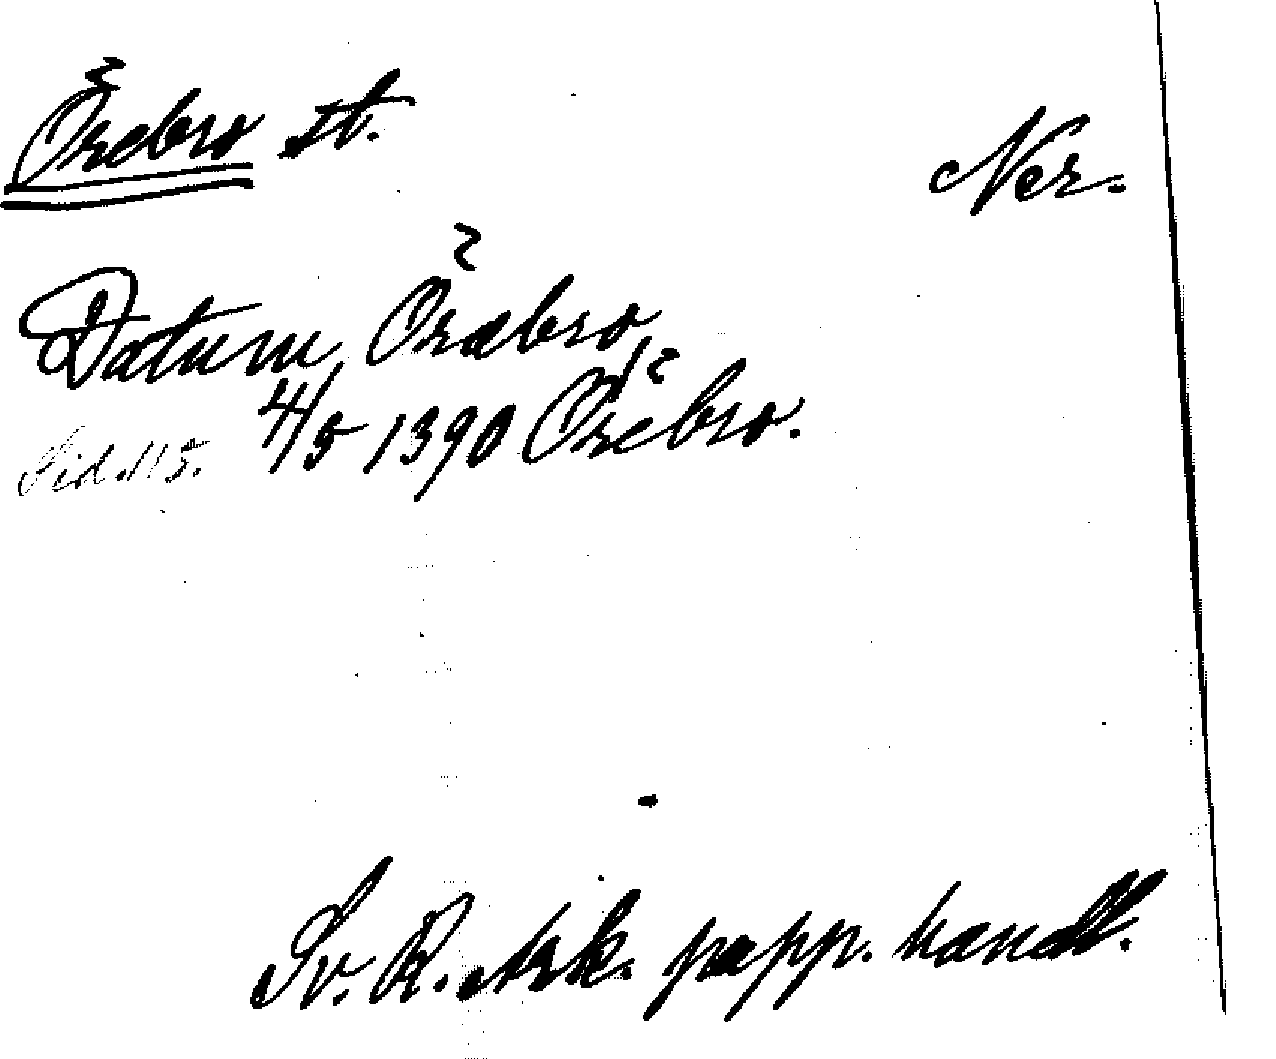 Örebro st.
Ner.
Datum Örebro,
4/5 1390 Örebro.
Sid. 115.
Sv. R. Ark. papp. handl.